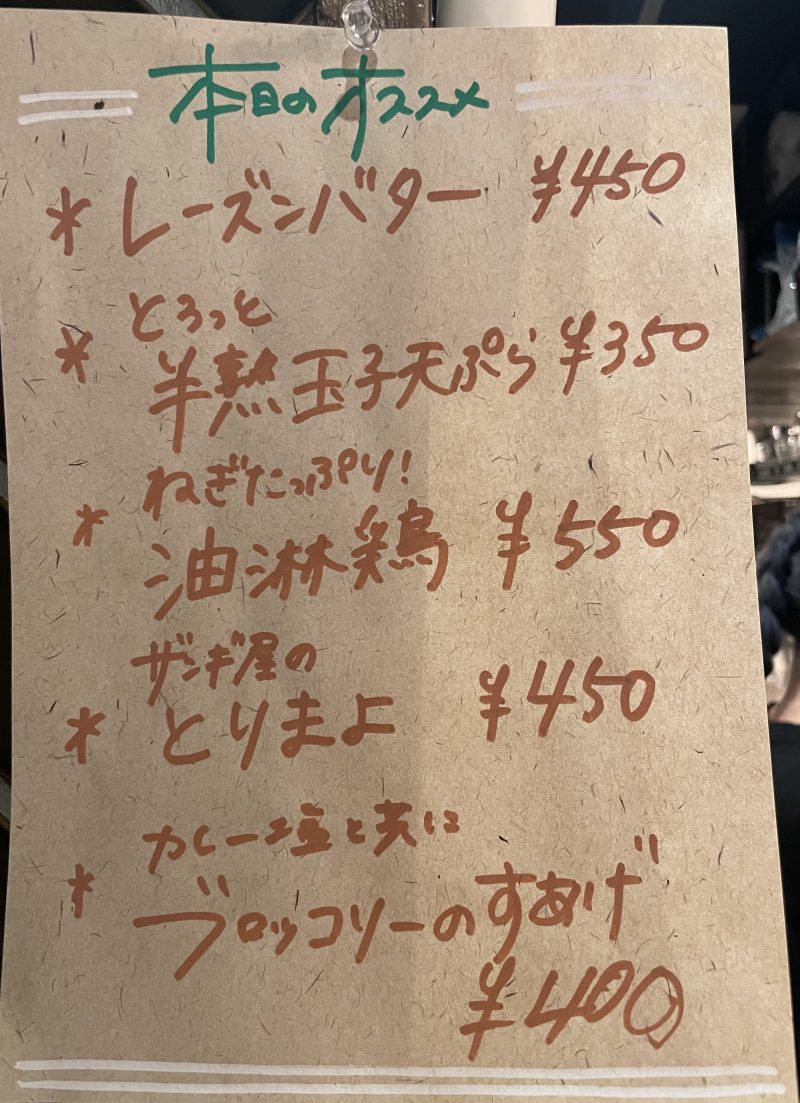 本日のオススメ
* レーズンバター ¥450
とろっと
* 半熟玉子天ぷら ¥350
ねぎたっぷり!
* 油淋鶏 ¥550
ザンギ屋の
* とりまよ ¥450
カレー塩と共に
* ブロッコリーのすあげ
¥400